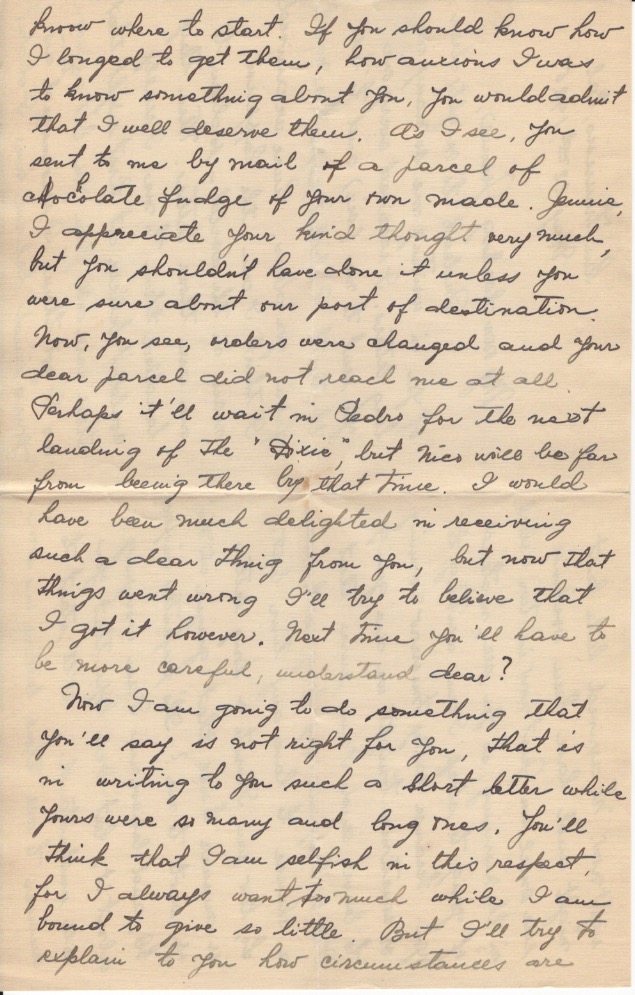 know where to start. If you should know how
I longed to get them, how anxious I was
to know something about you, you would admit
that I well deserve them. As I see, you
sent to me by mail of a parcel of
chocolate fudge of your own made. Jennie,
I appreciate your kind thought very much,
but you shouldn't have done it unless you
were sure about our port of destination.
Now, you see, orders were changed and your
dear parcel did not reach me at all.
Perhaps it'll wait in Pedro for the next
landing of the "Dixie," but Nico will be far
from beeing there by that time. I would
have been much delighted in receiving
such a dear thing from you, but now that
things went wrong I'll try to believe that
I got it however. Next time you'll have to
be more careful, understand dear?
Now I am going to do something that
you'll say is not right for you, that is
in writing to you such a short letter while
yours were so many and long ones. You'll
think that I am selfish in this respect,
for I always want too much while I am
bound to give so little. But I'll try to
explain to you how circumstances are